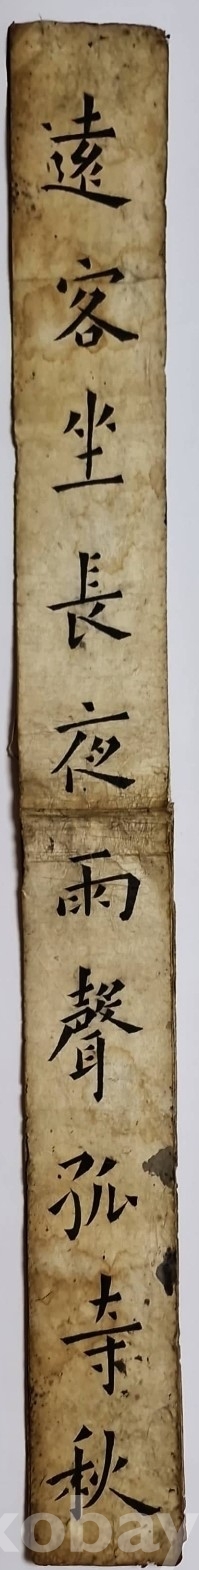 遠客坐長夜雨聲孤寺秋
kobay